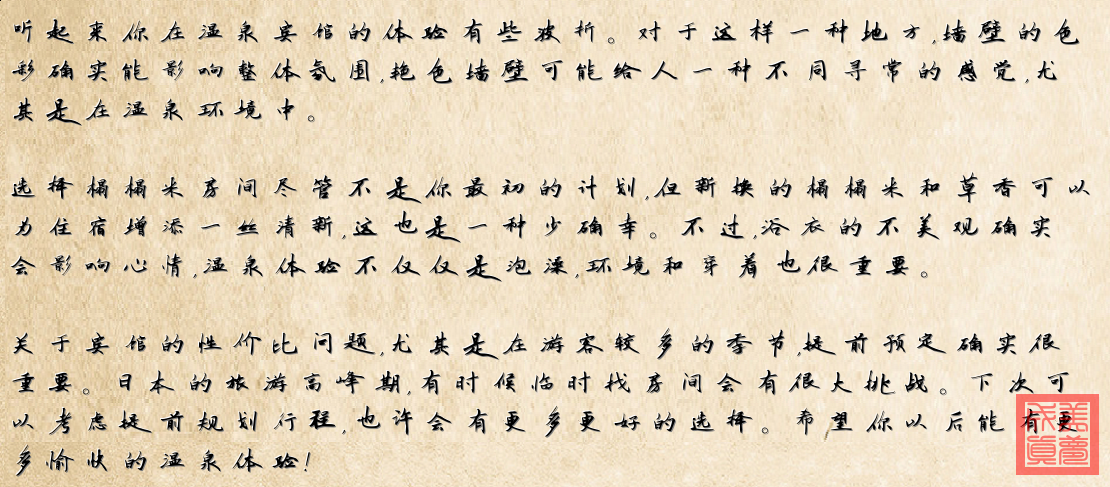 听起来你在温泉宾馆的体验有些波折。对于这样一种地方,墙壁的色
彩确实能影响整体氛围,艳色墙壁可能给人一种不同寻常的感觉,尤
其是在温泉环境中。
选择榻榻米房间尽管不是你最初的计划,但新换的榻榻米和草香可以
为住宿增添一丝清新,这也是一种少确幸。不过,浴衣的不美观确实
会影响心情,温泉体验不仅仅是泡澡,环境和穿着也很重要。
关于宾馆的性价比问题,尤其是在游客较多的季节,提前预定确实很
重要。日本的旅游高峰期,有时候临时找房间会有很大挑战。下次可
以考虑提前规划行程,也许会有更多更好的选择。希望你以后能有更
多愉快的温泉体验!
美梦成真